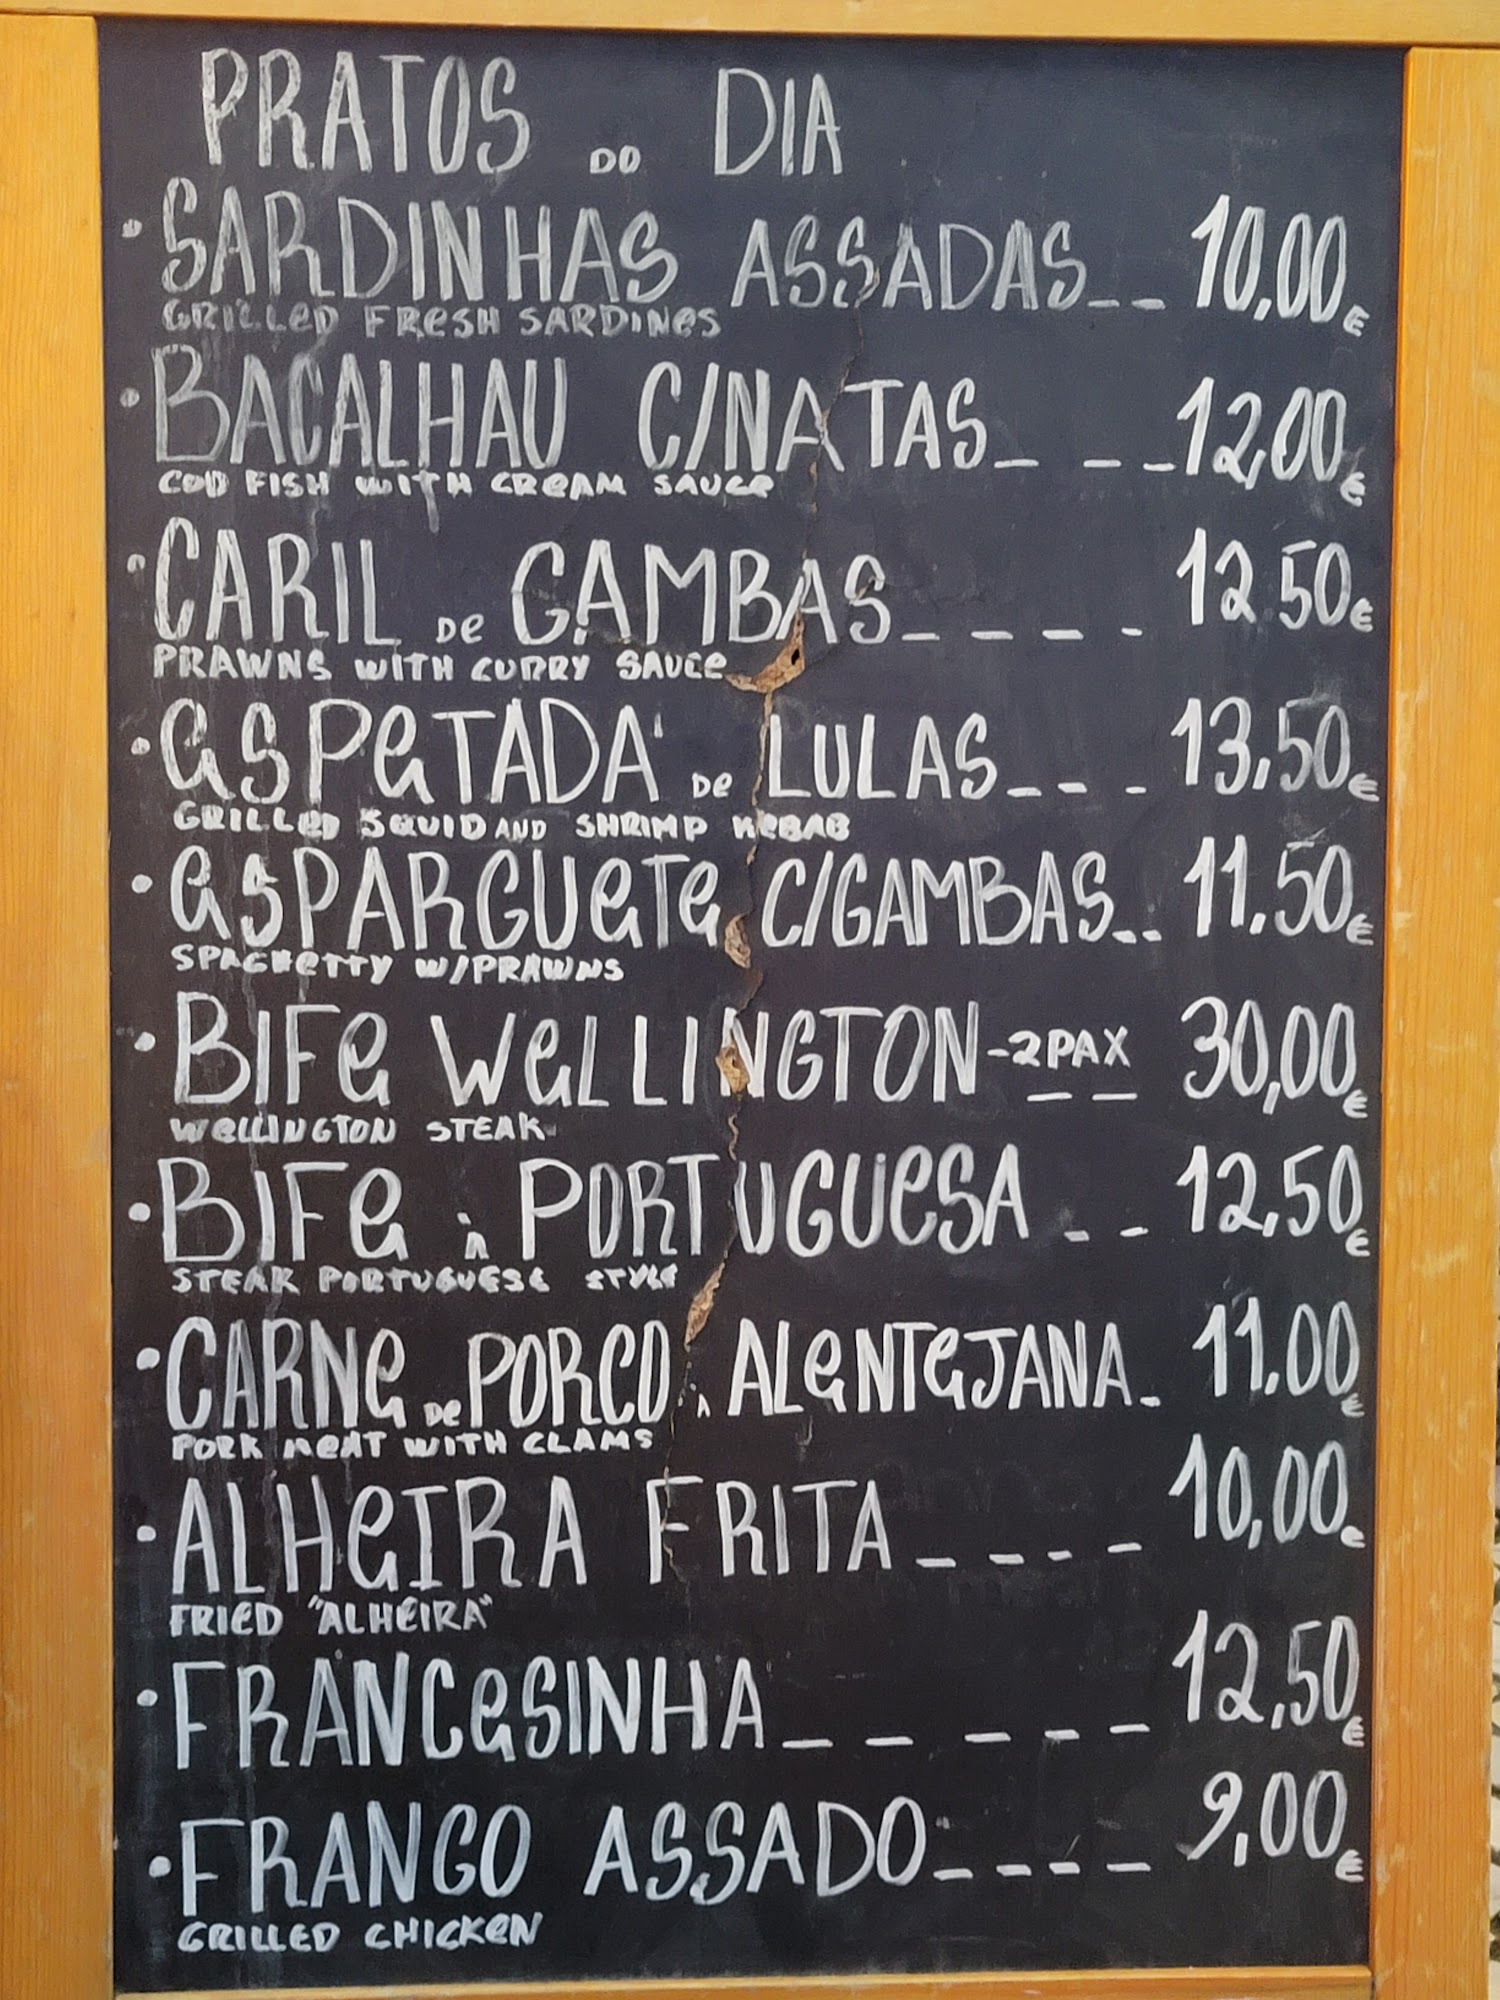 PRATOS DO DIA
• SARDINHAS ASSADAS__ 10,00€
GRILLED FRESH SARDINES
• BACALHAU C/NATAS_ _ _ 12,00€
COD FISH WITH CREAM SAUCE
• CARIL DE GAMBAS_ _ _ _ 12,50€
PRAWNS WITH CURRY SAUCE
• ESPETADA DE LULAS_ _ _ 13,50€
GRILLED SQUID AND SHRIMP KEBAB
• ESPARGUETE C/GAMBAS__ 11.50€
SPAGHETTY W/PRAWNS
• BIFE WELLINGTON-2PAX _ _ 30,00€
WELLINGTON STEAK
• BIFE À PORTUGUESA _ _ 12,50€
STEAK PORTUGUESE STYLE
• CARNE DE PORCO À ALENTEJANA_ 11.00€
PORK MEAT WITH CLAMS
• ALHEIRA FRITA _ _ _ _ 10,00€
FRIED "ALHEIRA"
• FRANCESINHA_ _ _ _ _ 12,50€
• FRANGO ASSADO_ _ _ _ 9,00€
GRILLED CHICKEN